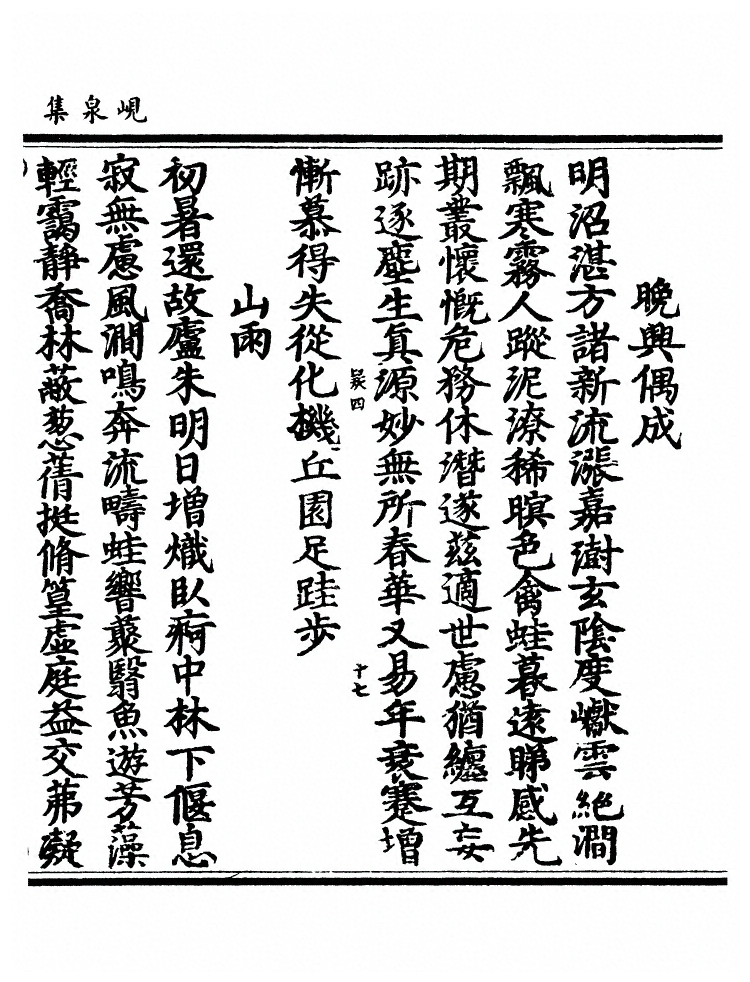 峴泉集
晚興偶成
明沼湛方諸新流漲嘉澍玄陰度巘雲絕澗
飄寒霧人蹤泥潦稀暝色禽蛙暮遠睇感先
期叢懷慨危務休潛遂茲適世慮猶纏互妄
跡逐塵生真源妙無所春華又易年衰蹇增
四
十七
慚慕得失從化機丘園足跬步
山雨
初暑還故廬朱明日增熾臥痾中林下偃息
寂無慮風澗鳴奔流疇蛙響藂翳魚遊芳藻
輕靄靜喬林蔽葱蒨挺脩篁虛庭益交茀凝